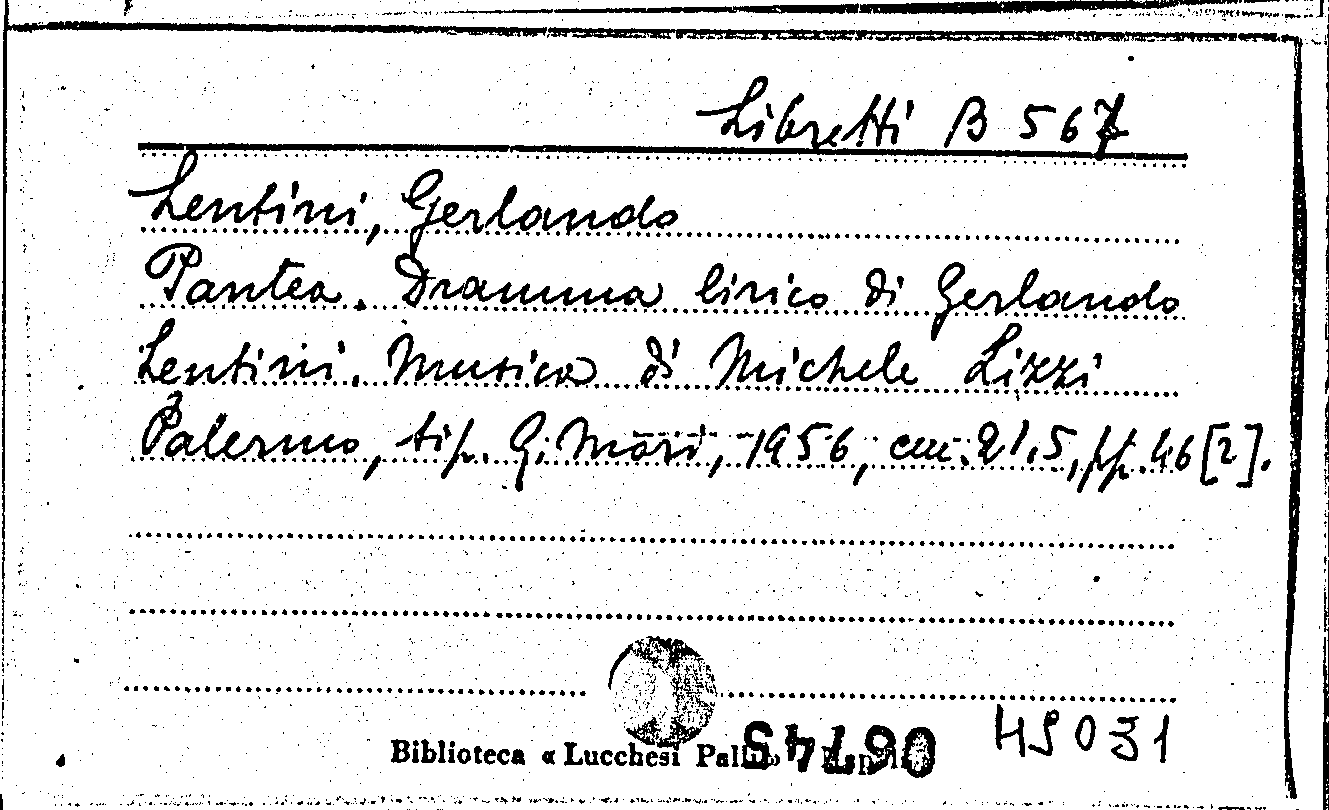 Libretti B 567
Lentini, Gerlando
Pantea. Dramma lirico di Gerlando
Lentini. Musica di Michele Lizzi
Palermo, tip. G. Mori, 1956, cm. 21.5, pp. 46 [2].
Biblioteca « Lucchesi
06745